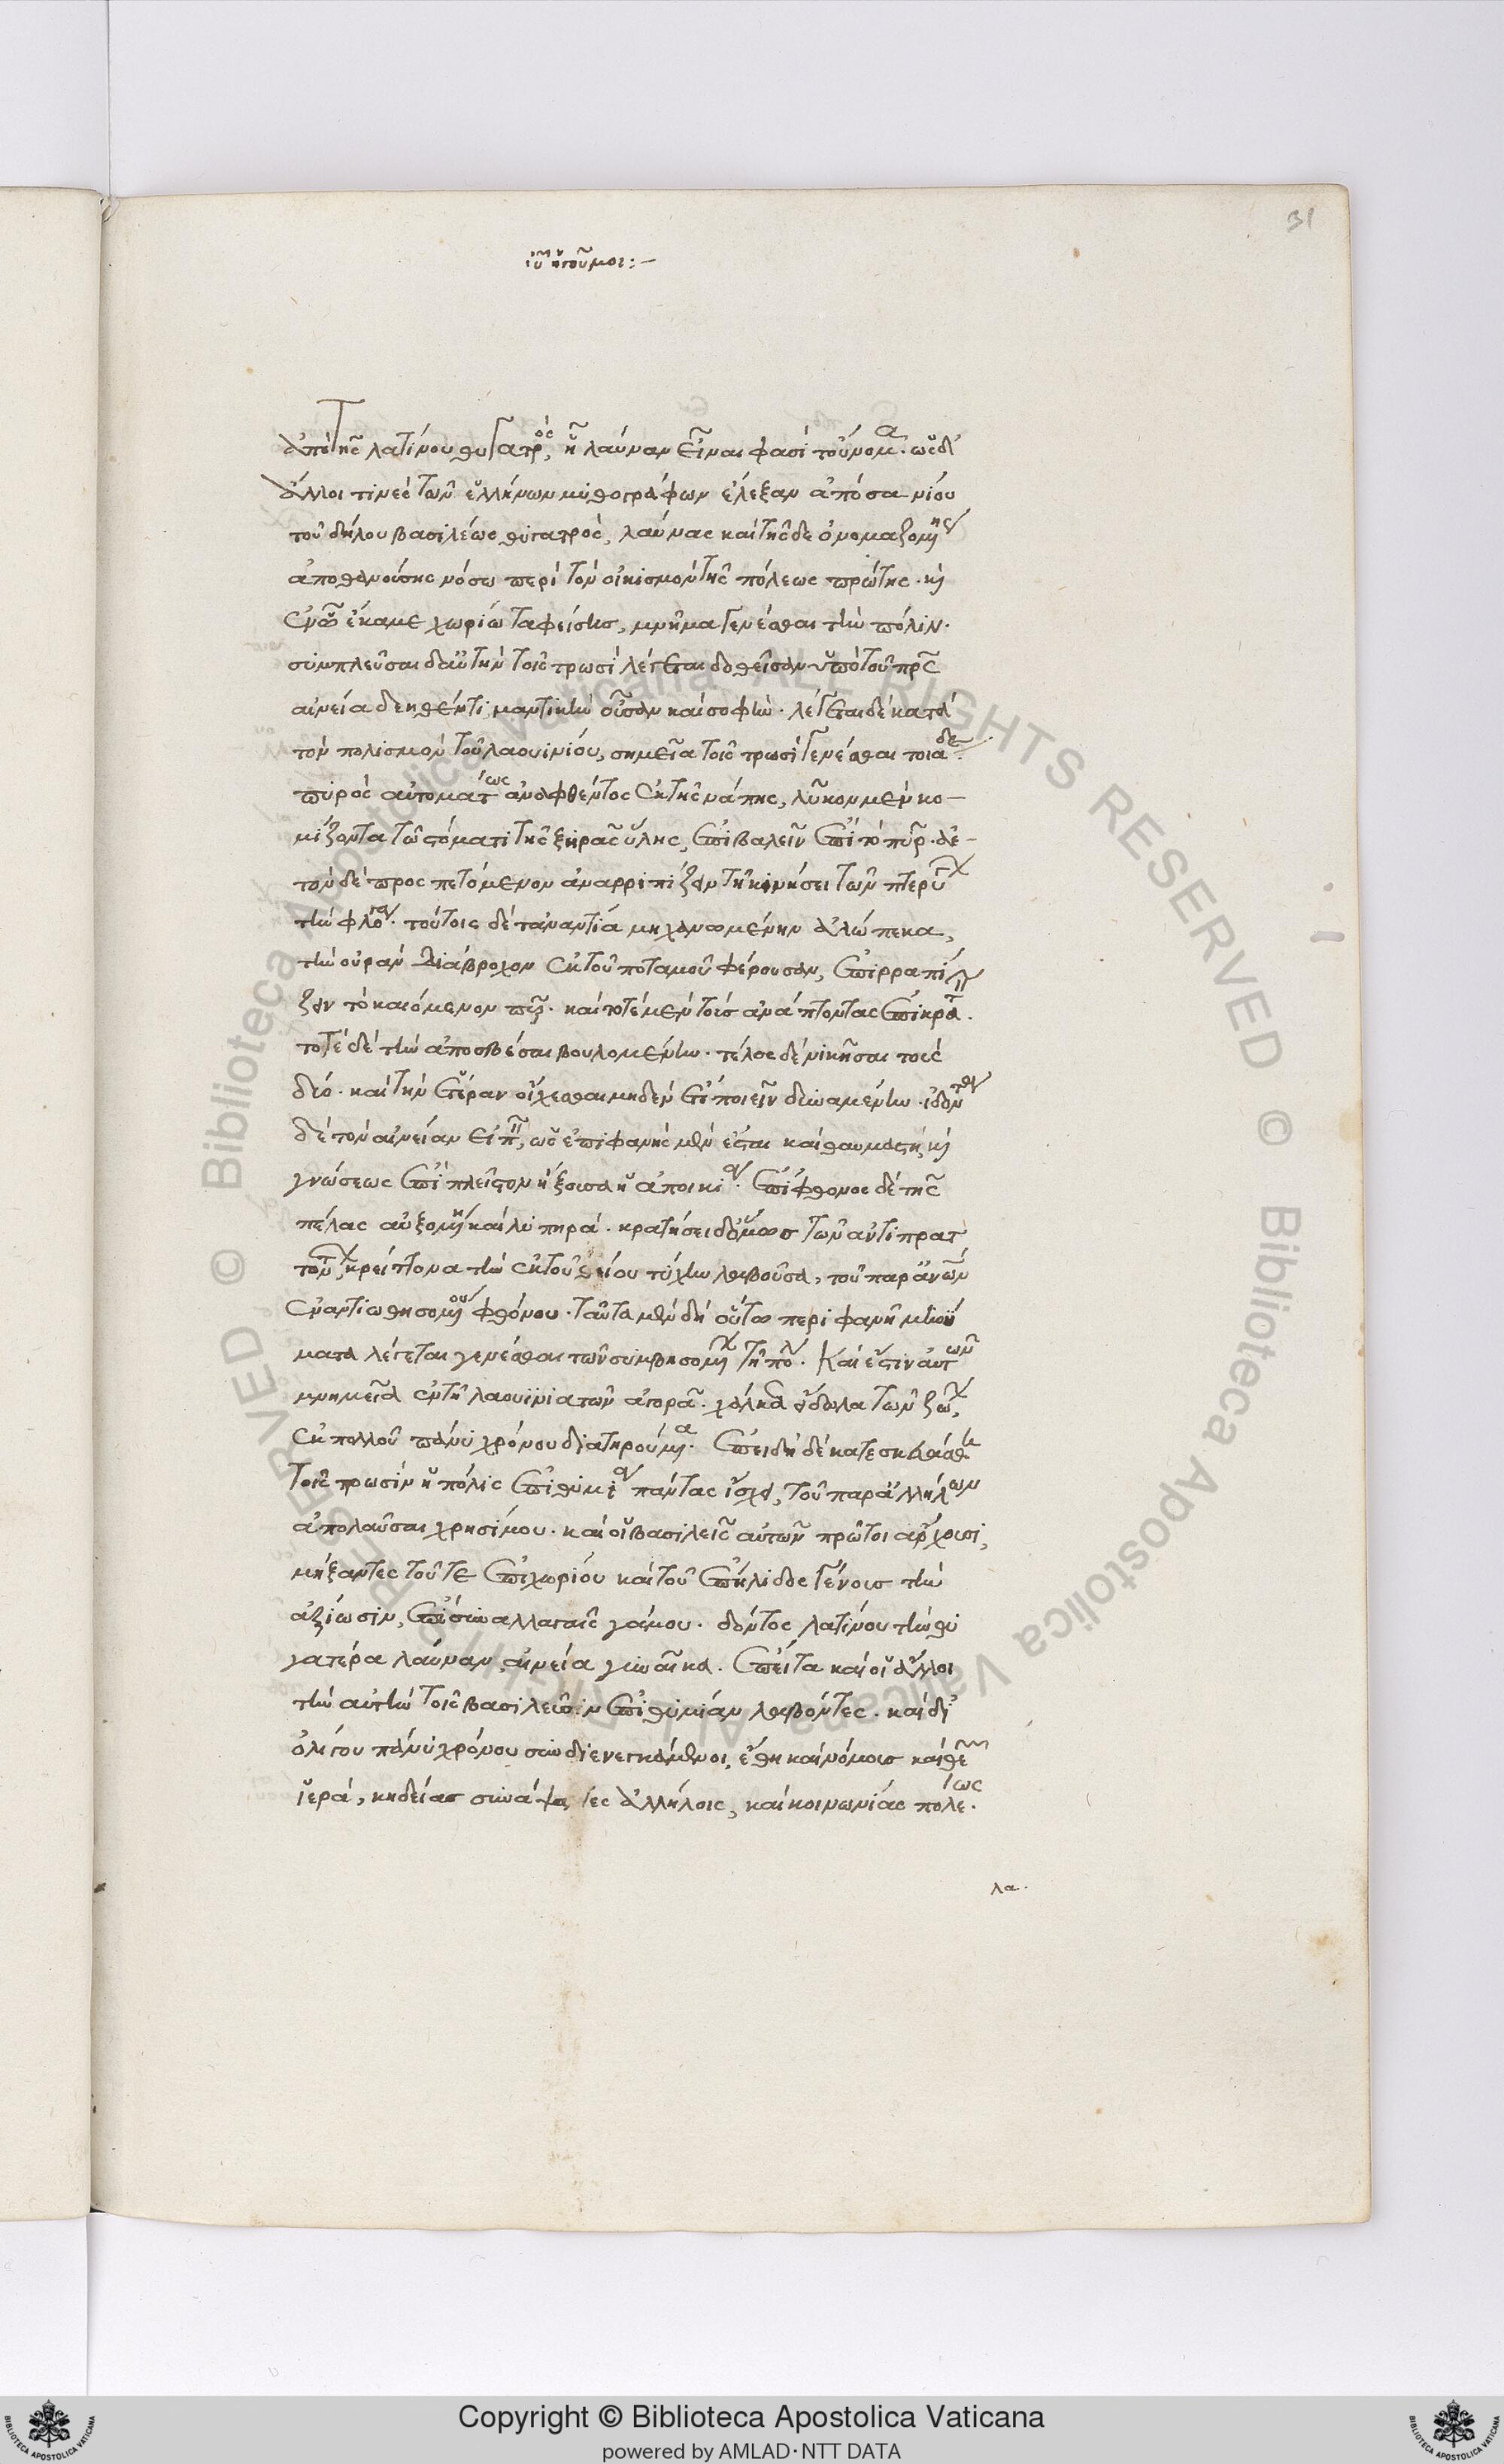 31
ἀπὸ τῆς λατίνου θυγατρός, ἧ λαύναν εἶναι φασὶ τοὔνομα. ὡς δ'
ἄλλοι τινὲς τῶν ἑλλήνων μυθογράφων ἔλεξαν ἀπὸ σα νίου
τοῦ δήλου βασιλέως θυγατρὸς, λαύνας καὶ τῆσδε ὀνομαζομένης
ἀποθανούσης νόσω περὶ τὸν οἰκισμὸν τῆς πόλεως πρώτης. καὶ
ἐν ὧ ἔκαμε χωρίω ταφείσης, μνῆμα γενέσθαι τὴν πόλιν.
συμπλεῦσαι δ' αὐτὴν τοῖς τρωσὶ λέγεται δοθεῖσαν ὑπὸ τοῦ πατρὸς
αἰνεία δεηθέντι μαντικὴν οὖσαν καὶ σοφήν. λέγεται δὲ κατὰ
τὸν πολισμὸν τοῦ λαουινίου, σημεῖα τοῖς τρωσὶ γενέσθαι τοιάδε.
πυρὸς αὐτομάτως ἀναφθέντος ἐκ τῆς νάπης, λύκον μὲν κο-
μίζοντα τῶ στόματι τῆς ξηρᾶς ὕλης, ἐπιβαλεῖν ἐπὶ τὸ πῦρ. ἀε-
τὸν δὲ προσπετόμενον ἀναρριπίζειν τῆ κινήσει τῶν πτερύγων
τὴν φλόγα. τούτοις δὲ τἀναντία μηχανωμένην ἀλώπεκα,
τὴν οὐρὰν διάβροχον ἐκ τοῦ ποταμοῦ φέρουσαν, ἐπιρραπί
ζειν τὸ καιόμενον πῦρ. καὶ ποτὲ μὲν τοὺσ ἀνάπτοντας ἐπικρατεῖν.
τοτὲ δὲ τὴν ἀποσβέσαι βουλομένην. τέλος δὲ νικῆσαι τοὺς
δύο. καὶ τὴν ἑτέραν οἴχεσθαι μηδὲν ἔτι ποιεῖν δυναμένην. ἰδόντα
δὲ τὸν αἰνείαν εἰπεῖν, ὡς ἐπιφανής μὲν ἔσται καὶ θαυμαστὴ, καὶ
γνώσεως ἐπὶ πλεῖστον ἥξουσα ἡ ἀποικία. ἐπίφθονος δὲ τοῖς
πέλας αὐξομένη καὶ λυπηρά. κρατήσει δ' ὅμωσ τῶν ἀντιπραττ
των, κρείττονα τὴν ἐκ τοῦ θείου τύχην λαβοῦσα, τοῦ παρ' ἀνθρώπων
ἐναντιωθησομένου φθόνου. ταῦτα μὲν δὴ οὕτω περιφανῆ μηνύ
ματα λέγεται γενέσθαι τῶν συμβησομένων τῆ πόλει. Καὶ ἔστιν αὐτῶν
μνημεῖα ἐν τῆ λαουινιατῶν ἀγορᾶ. χάλκεα εἴδωλα τῶν ζώων,
ἐκ πολλοῦ πάνυ χρόνου διατηρούμενα. Ἐπειδὴ δὲ κατεσκευάσθη
τοῖς τρωσὶν ἡ πόλις ἐπιθυμία πάντας ἔσχε, τοῦ παρ' ἀλλήλων
ἀπολαῦσαι χρησίμου. καὶ οἱ βασιλεῖς αὐτῶν πρῶτοι ἄρχουσι,
μίξαντες τοῦ τε ἐπιχωρίου καὶ τοῦ ἐπήλιδος γένουσ τὴν
ἀξίωσιν, ἐπὶ συναλλαγαῖς γάμου. δόντος λατίνου τὴν θυ
γατέρα λαύναν αἰνεία γυναῖκα. ἔπειτα καὶ οἱ ἄλλοι
τὴν αὐτὴν τοῖς βασιλεῦσιν ἐπιθυμίαν λαβόντες. καὶ δι'
ὀλίγου πάνυ χρόνου συνδιενεγκάμενοι, ἔθη καὶ νόμουσ καὶ θεῶν
ἱερά, κηδείασ συνάψαντες ἀλλήλοις, καὶ κοινωνίας πολέμως.
λα.
Copyright © Biblioteca Apostolica Vaticana
powered by AMLAD·NTT DATA